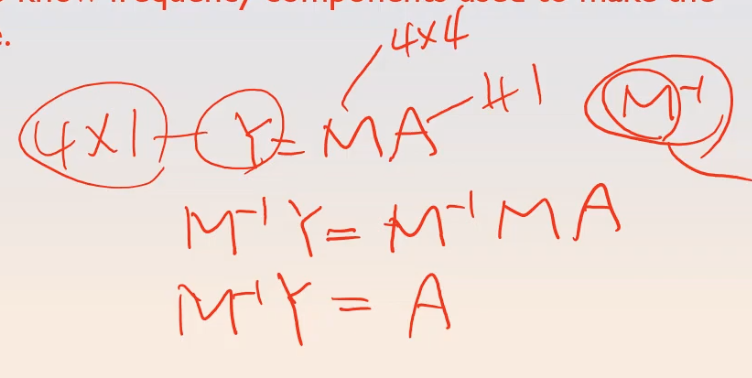 know frequency components used to make the
e.
4x4
4x1 - Y = MA - 41 M⁻¹
M⁻¹Y = M⁻¹MA
M⁻¹Y = A